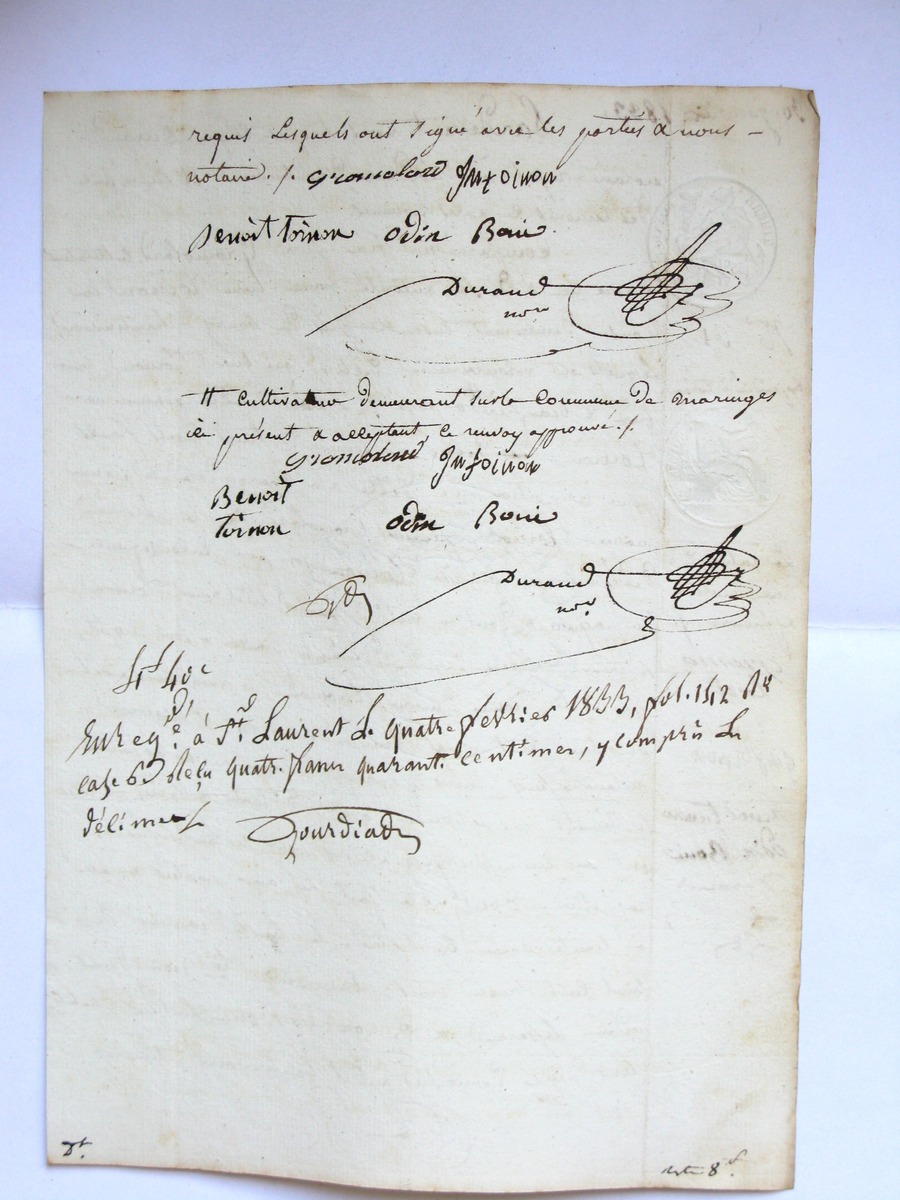 requis Lesquels ont signé avec les parties & nous –
notaire ./. gromolard Jn toinon
Benoit toinon odin Bonie
Durand
nore
# cultivateur demeurant sur la Commune de maringes
ici présent & acceptant, ce renvoy approuvé ./.
gromolard Jn toinon
Benoit
toinon odin Bonie
Durand
nore
4f 40c
Enregé à St. Laurent Le quatre février 1833, fol. 142 Re
case 6 Reçu quatre francs quarante centimes, y compris Le
décime
Gourdiat
8f